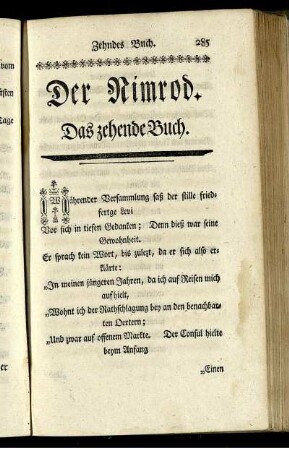 Zehndes Buch. 285
Der Nimrod.
Das zehende Buch.
Währender Versammlung saß der stille fried-
fertge Levi
Vor sich in tiefen Gedanken; Denn dieß war seine
Gewohnheit.
Er sprach kein Wort, bis zulezt, da er sich also er-
klärte:
„In meinen jüngeren Jahren, da ich auf Reisen mich
aufhielt,
„Wohnt ich der Rathschlagung bey an den benachbar-
ten Oertern;
„Und zwar auf offenem Markte. Der Consul hielte
beym Anfang
„Einen
vom
Tage
er